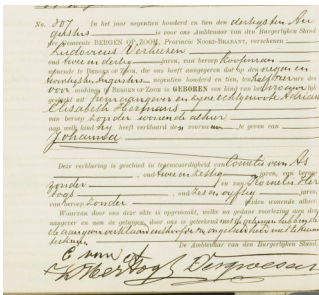 No. 387 In het jaar negentien honderd en tien den dertigsten Au-
gustus is voor ons Ambtenaar van den Burgerlijken Stand
der Gemeente BERGEN OP ZOOM, Provincie NOORD-BRABANT, verschenen
Ludovicus
oud twee en dertig jaren, van beroep Koopman
wonende te BERGEN OP ZOOM, die ons heeft aangegeven dat op den negen en
twintigsten Augustus dezes jaars, ten half vier
voor middag te BERGEN OP ZOOM is GEBOREN een kind van het vrouwelijk
geslacht uit aangever en zijne echtgenoote Adriana
Elisabeth Hermans
van beroep zonder wonende alhier
aan welk kind hij heeft verklaard den voornaam te geven van
Johanna
Deze verklaring is geschied in tegenwoordigheid van Cornelis van As
oud twee en zestig jaren, van beroep
zonder en Kornelis Her-
togs, oud zes en vijftig jaren,
van beroep zonder beiden wonende alhier.
Waarvan door ons deze akte is opgemaakt, welke na gedane voorlezing aan den
aangever en aan de getuigen, door is geteekend met de getuigen hebbende
de aangever verklaard
De Ambtenaar van den Burgerlijken Stand
C van As